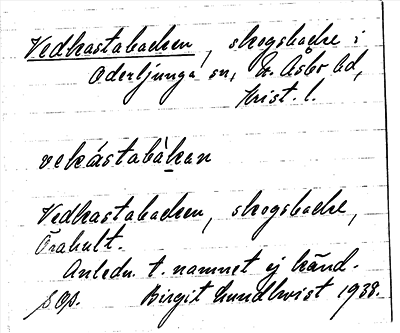 Vedkastabacken, skogsbacke i
Oderljunga sn, V. Åsbo hd,
Krist. l.
vekástabàkan
Vedkastabacken, skogsbacke,
Örahult.
Anledn. t. namnet ej känd.
Birgit Lundkvist 1938.